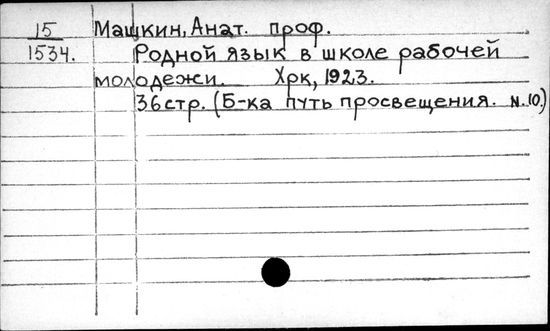 15 Машкин, Анат. проф.
1534. Родной язык в школе рабочей
молодежи. Хрк, 1923.
36 стр. (Б-ка путь просвещения. N.10.)